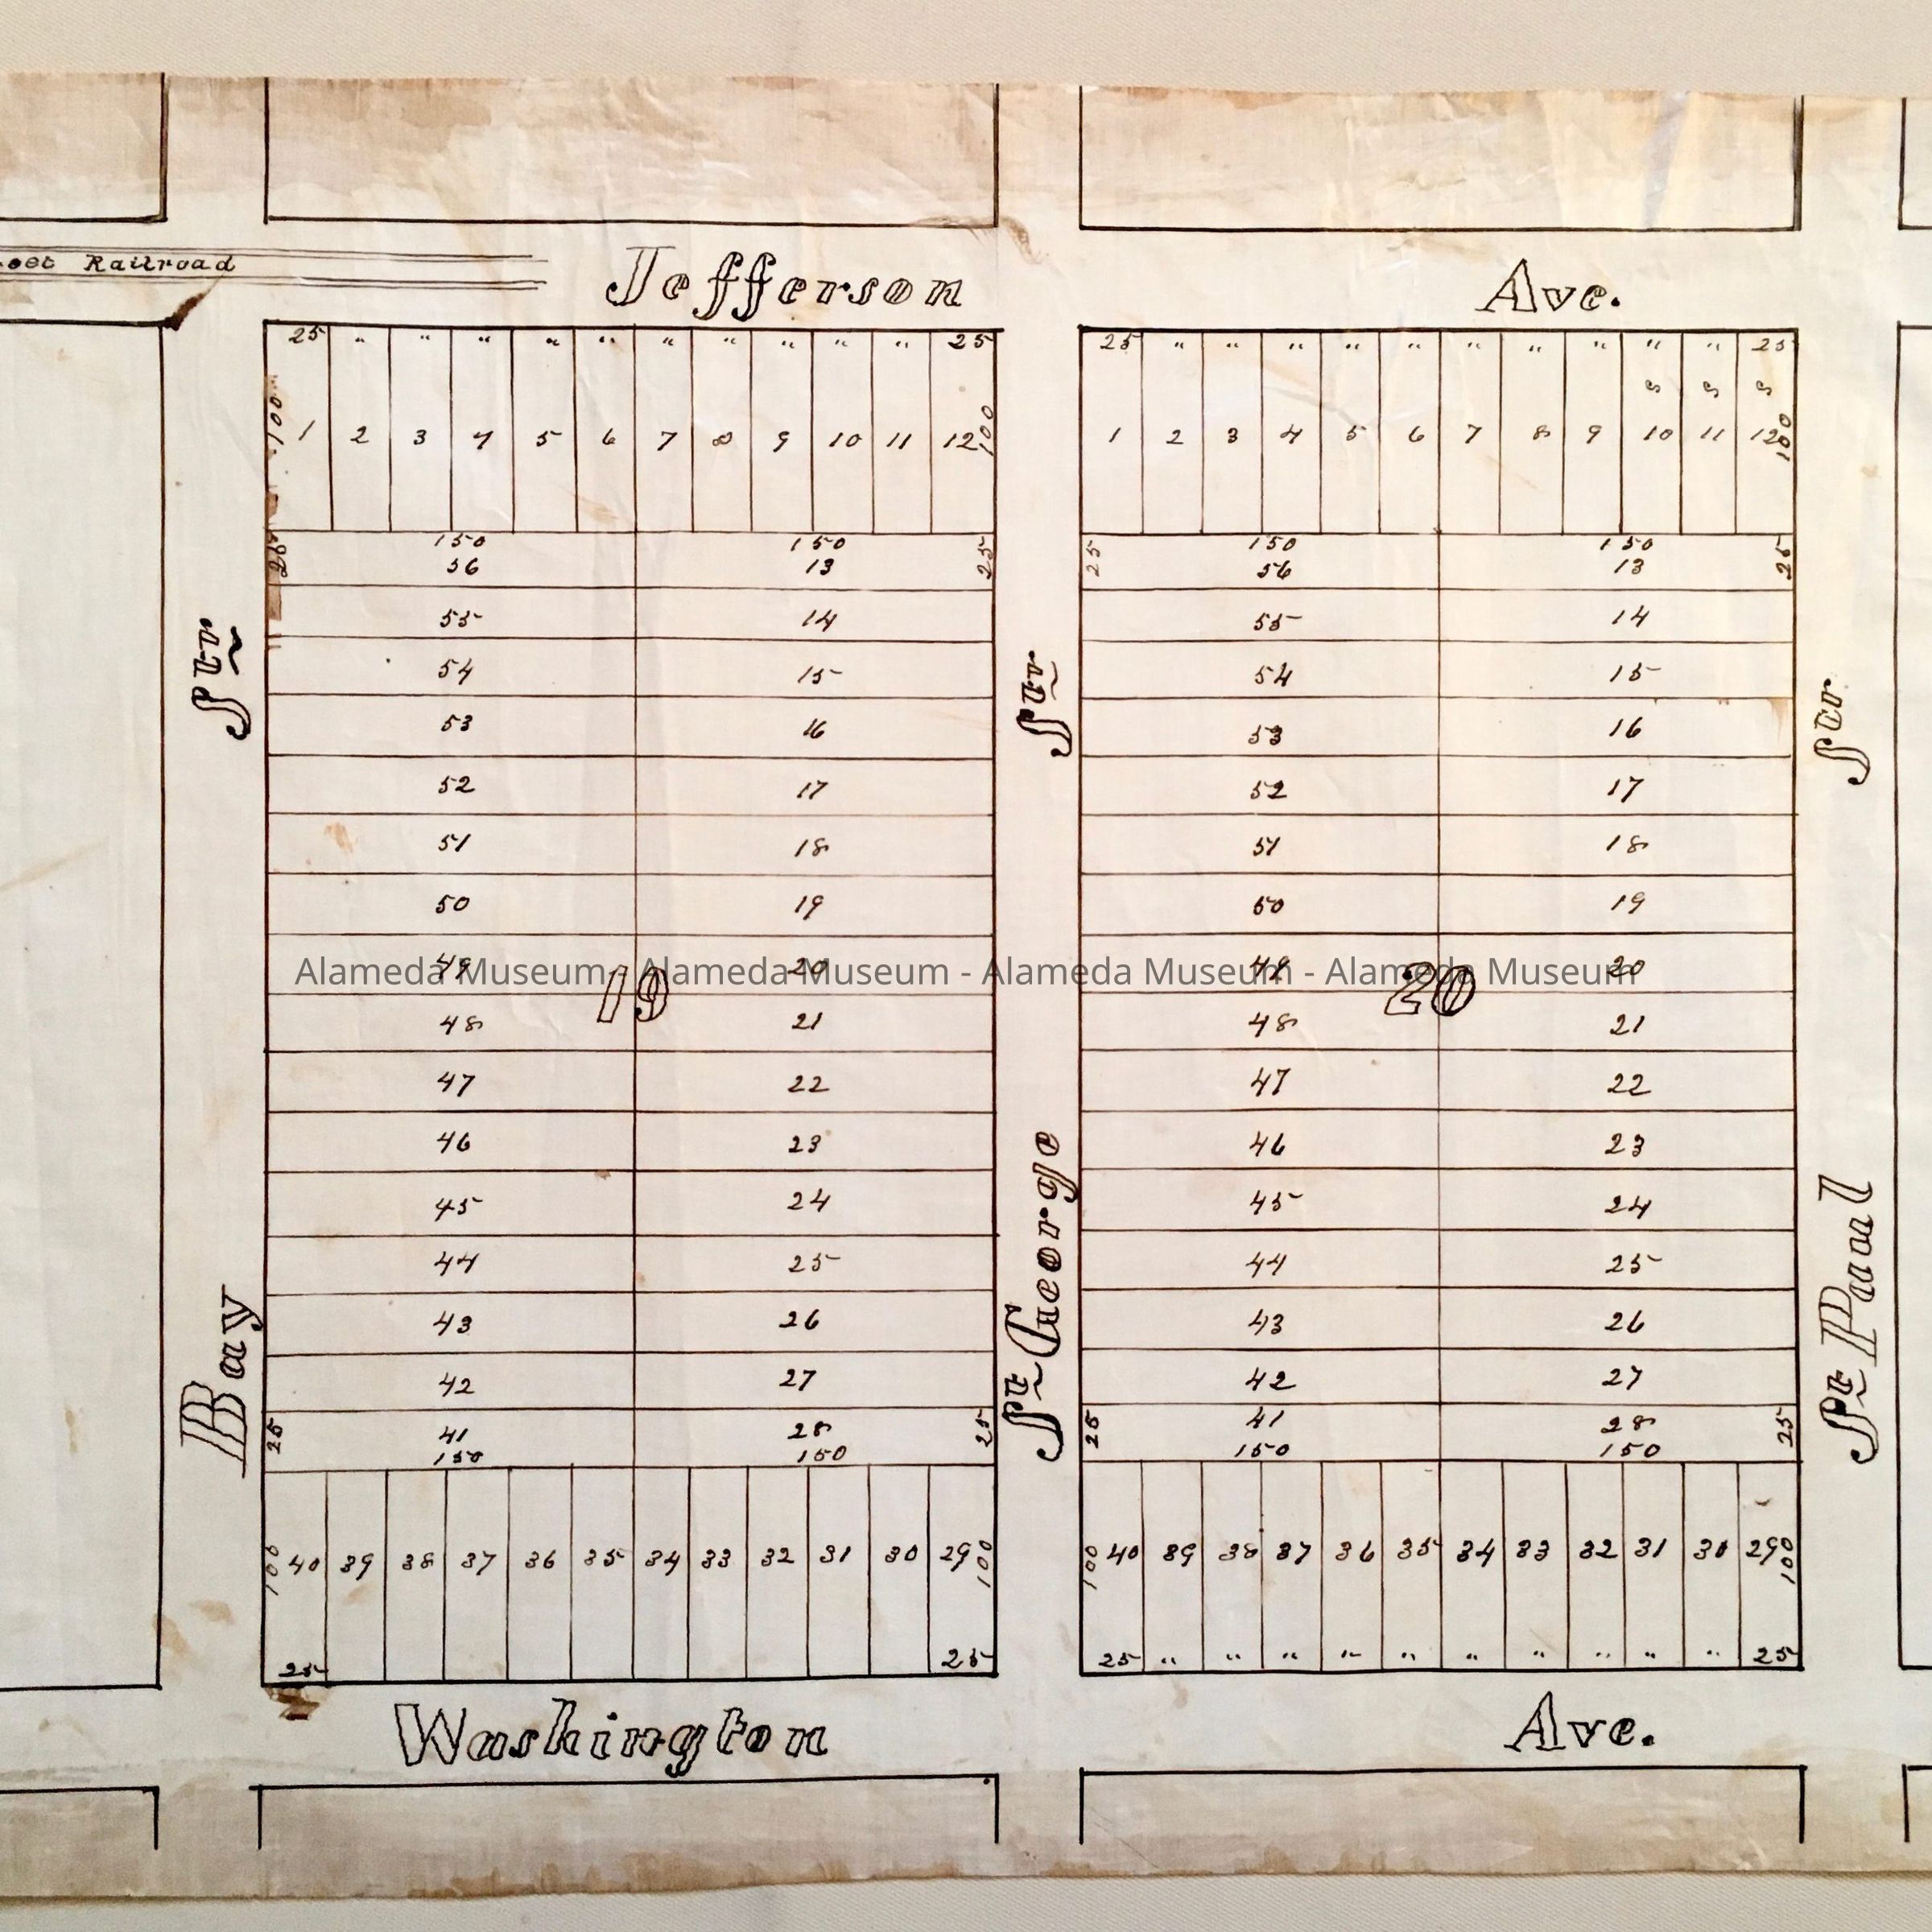 Railroad
Jefferson Ave.
25 " " " " " " " " " " 25
25 " " " " " " " " " " 25
S S S
100 1 2 3 4 5 6 7 8 9 10 11 12 100
1 2 3 4 5 6 7 8 9 10 11 12 100
150 150 150 150
25 56 13 25 25 56 13 25
55 14 55 14
54 15 54 15
53 16 53 16
52 17 52 17
51 18 51 18
50 19 50 19
49 20 49 20
19 20
48 21 48 21
47 22 47 22
46 23 46 23
45 24 45 24
44 25 44 25
43 26 43 26
42 27 42 27
25 41 28 25 25 41 28 25
150 150 150 150
100 40 39 38 37 36 35 34 33 32 31 30 29 100
100 40 39 38 37 36 35 34 33 32 31 30 29 100
25 25
25 " " " " " " " " " " 25
Washington Ave.
Bay Str
St George Str
St Paul Str
Alameda Museum - Alameda Museum - Alameda Museum - Alameda Museum